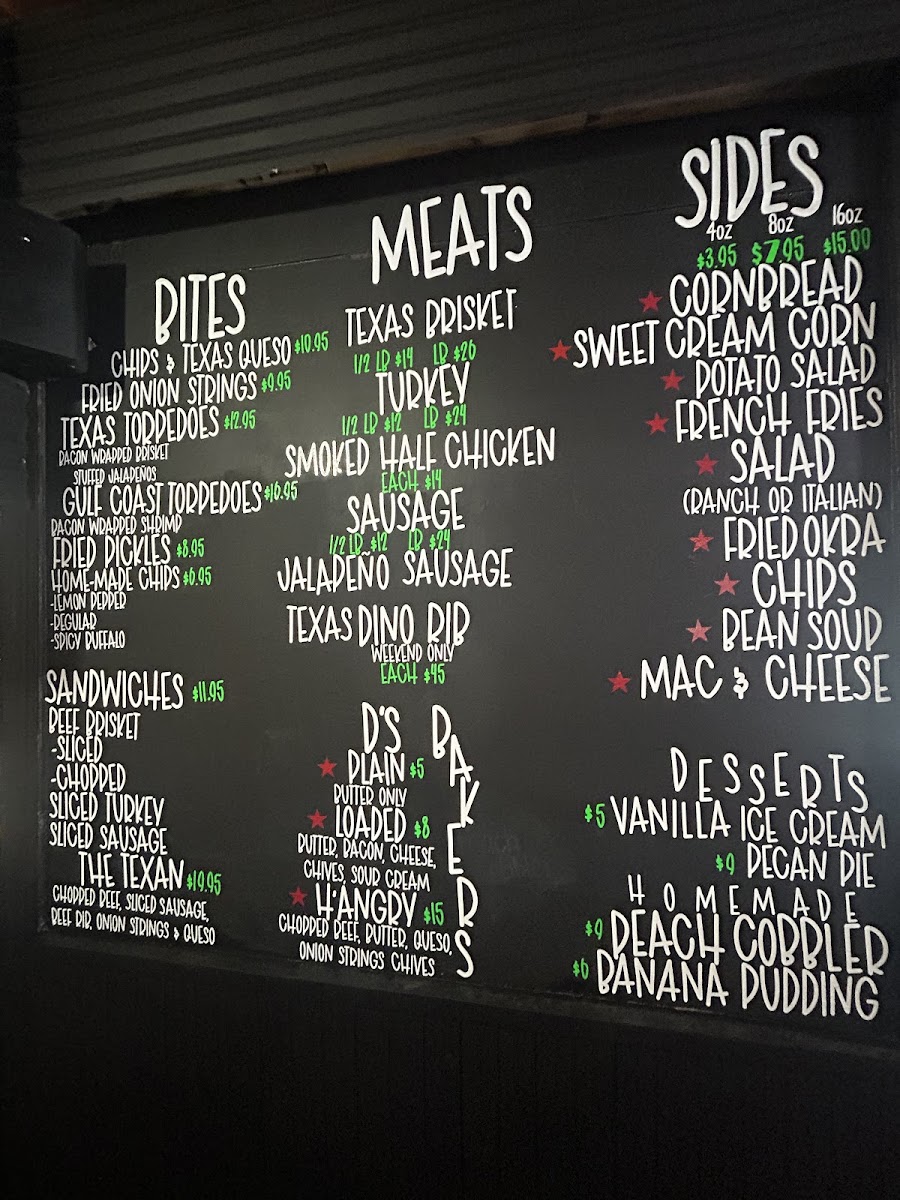 BITES
CHIPS & TEXAS QUESO $10.95
FRIED ONION STRINGS $9.95
TEXAS TORPEDOES $12.95
BACON WRAPPED BRISKET
STUFFED JALAPEÑOS
GULF COAST TORPEDOES $16.95
BACON WRAPPED SHRIMP
FRIED PICKLES $8.95
HOME-MADE CHIPS $6.95
-LEMON PEPPER
-REGULAR
-SPICY BUFFALO
SANDWICHES $11.95
BEEF BRISKET
-SLICED
-CHOPPED
SLICED TURKEY
SLICED SAUSAGE
THE TEXAN $19.95
CHOPPED BEEF, SLICED SAUSAGE,
BEEF RIB, ONION STRINGS & QUESO
MEATS
TEXAS BRISKET
1/2 LB $14 LB $26
TURKEY
1/2 LB $12 LB $24
SMOKED HALF CHICKEN
EACH $14
SAUSAGE
1/2 LB $12 LB $24
JALAPEÑO SAUSAGE
TEXAS DINO RIB
WEEKEND ONLY
EACH $45
D'S BAKERS
PLAIN $5
BUTTER ONLY
LOADED $8
BUTTER, BACON, CHEESE,
CHIVES, SOUR CREAM
H'ANGRY $15
CHOPPED BEEF, BUTTER, QUESO,
ONION STRINGS CHIVES
SIDES
4oz 8oz 16oz
$3.95 $7.95 $15.00
CORNBREAD
SWEET CREAM CORN
POTATO SALAD
FRENCH FRIES
SALAD
(RANCH OR ITALIAN)
FRIED OKRA
CHIPS
BEAN SOUP
MAC & CHEESE
DESSERTS
$5 VANILLA ICE CREAM
$9 PECAN PIE
HOMEMADE
$9 PEACH COBBLER
$6 BANANA PUDDING